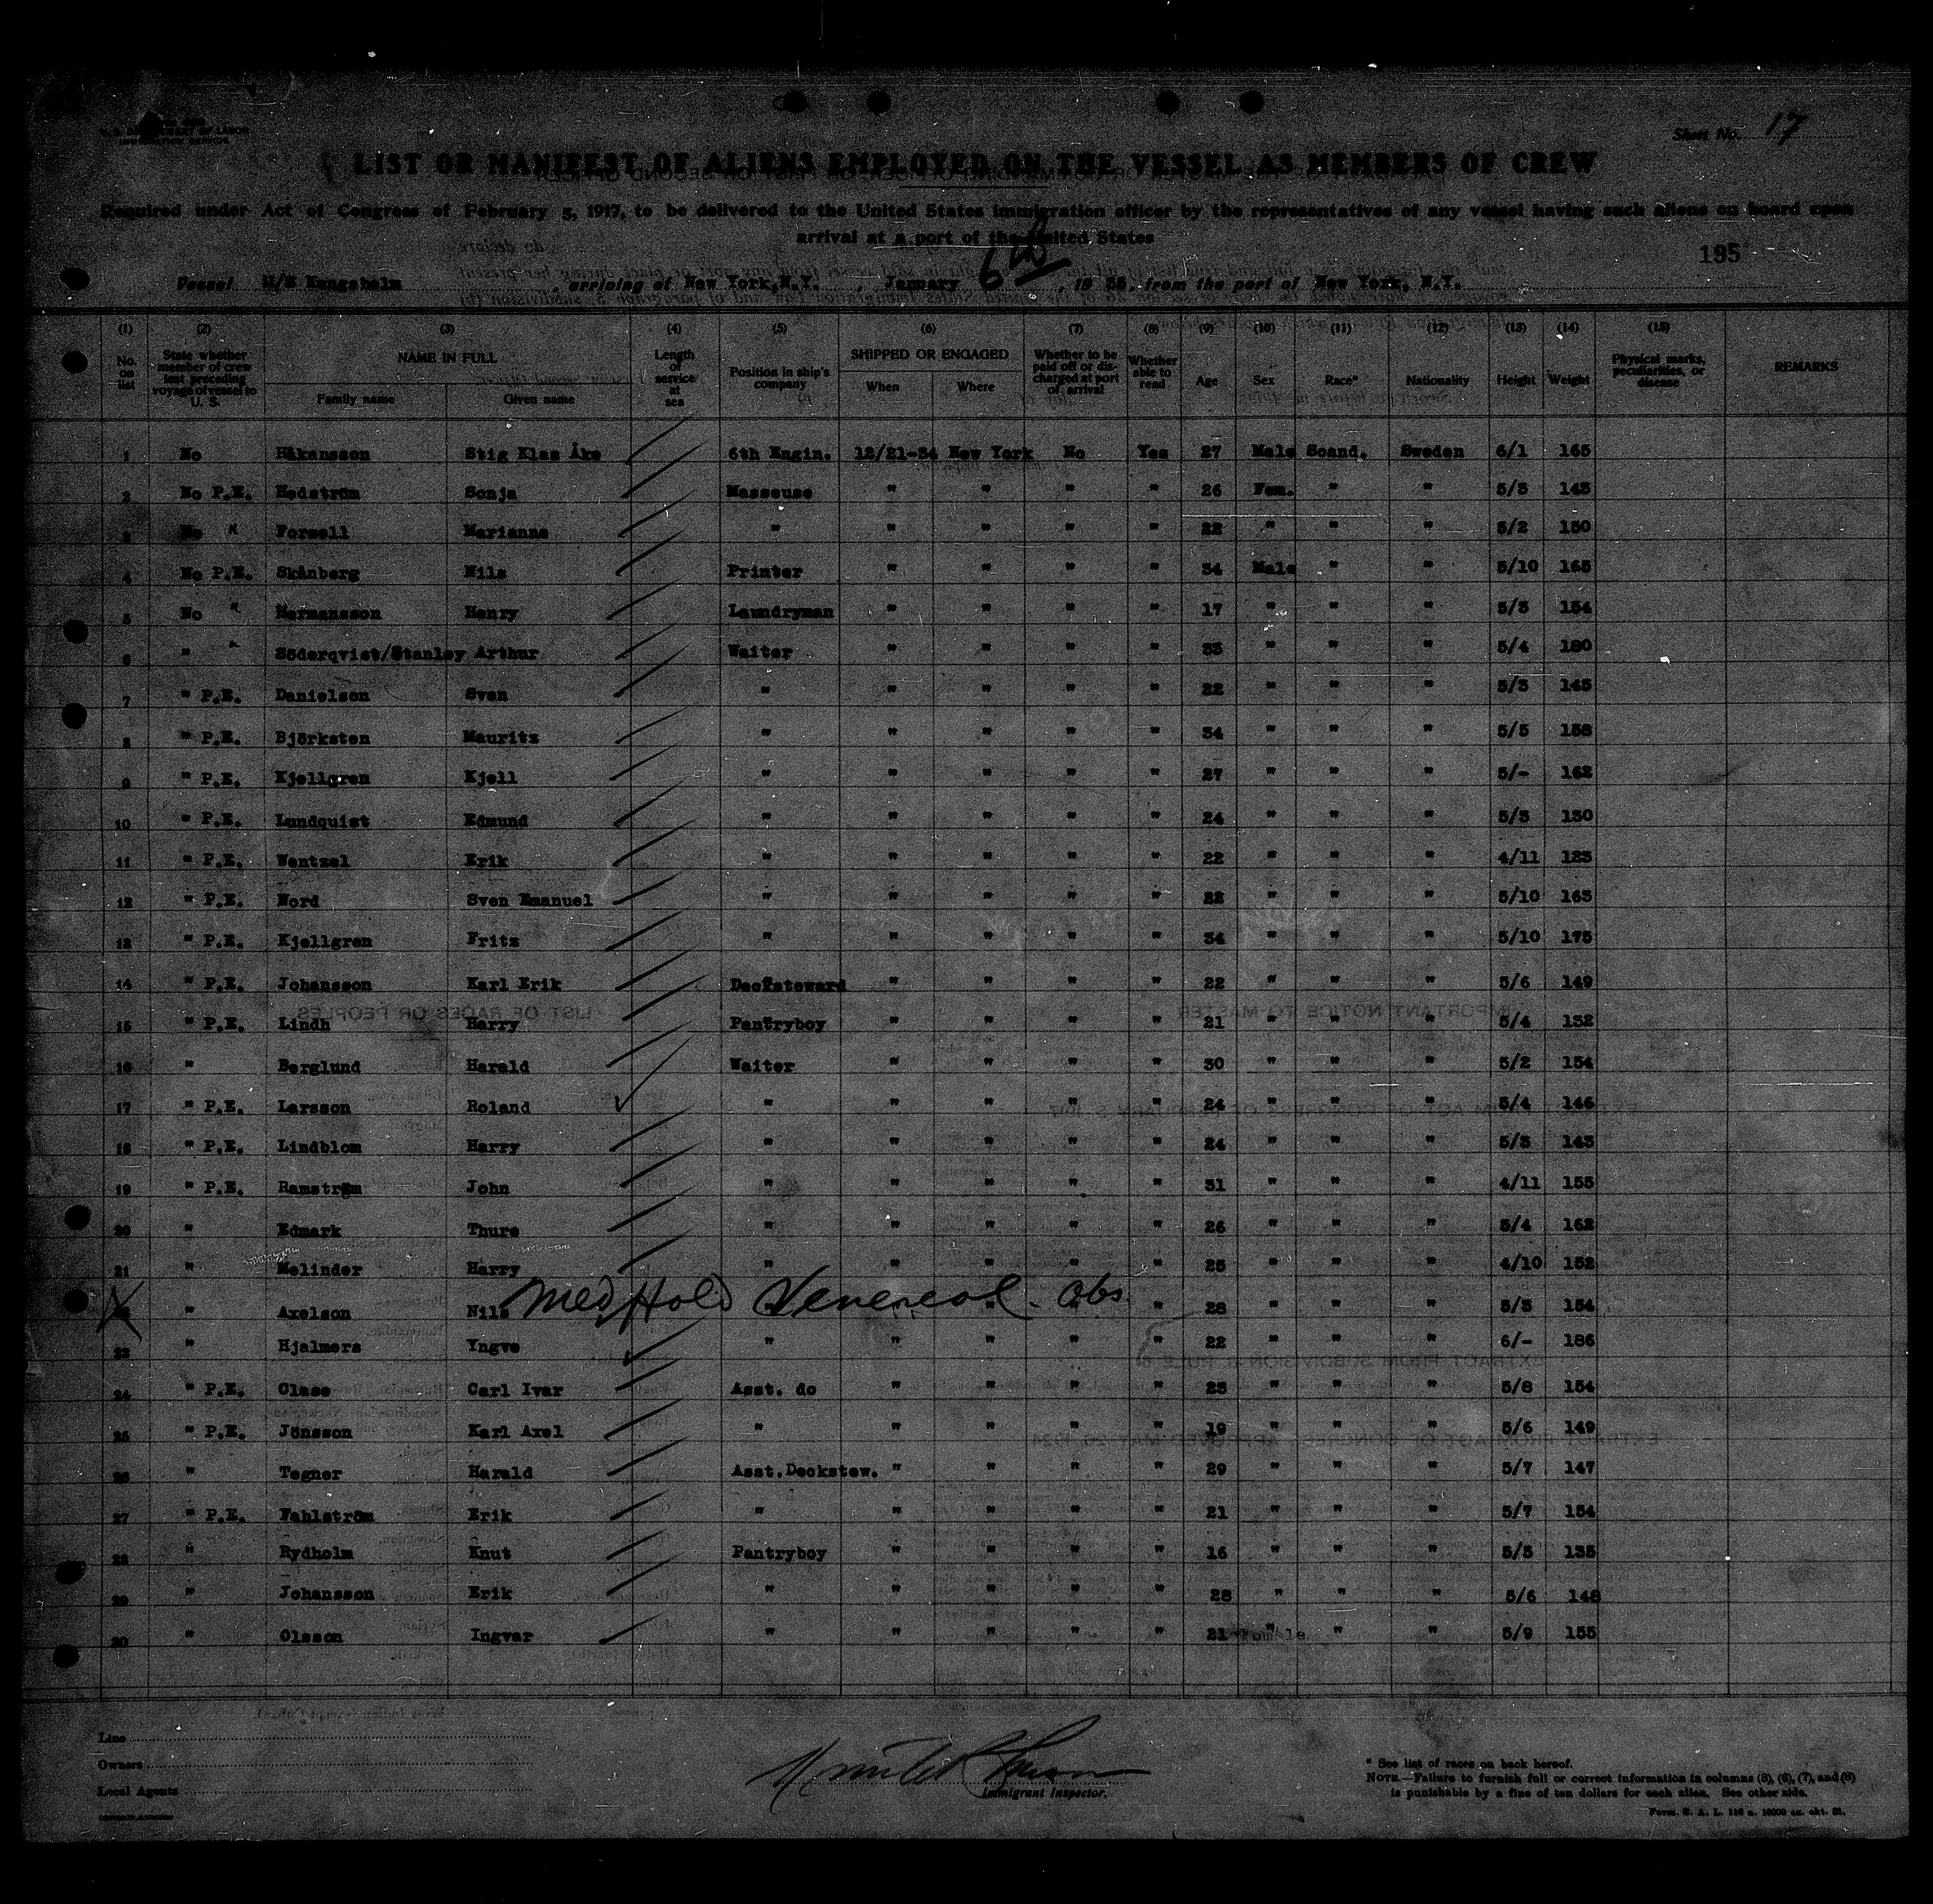 U. S. DEPARTMENT OF LABOR
IMMIGRATION SERVICE
Sheet No. 17
LIST OR MANIFEST OF ALIENS EMPLOYED ON THE VESSEL AS MEMBERS OF CREW
Required under Act of Congress of February 5, 1917, to be delivered to the United States immigration officer by the representatives of any vessel having such aliens on board upon
arrival at a port of the United States
195
Vessel M/S Kungsholm, arriving at New York, N.Y., January 6th, 1935, from the port of New York, N.Y.
(1) (2) (3) (4) (5) (6) (7) (8) (9) (10) (11) (12) (13) (14) (15)
No. on list State whether member of crew last preceding voyage of vessel to U. S. NAME IN FULL Family name Given name Length of service at sea Position in ship's company SHIPPED OR ENGAGED When Where Whether to be paid off or discharged at port of arrival Whether able to read Age Sex Race* Nationality Height Weight Physical marks, peculiarities, or disease REMARKS
1 No Håkansson Stig Klas Åke 6th Engin. 12/21-34 New York No Yes 27 Male Scand. Sweden 6/1 165
2 No P.E. Hedström Sonja Masseuse " " " " 26 Fem. " " 5/3 143
3 No " Forsell Marianne " " " " " 22 " " " 5/2 130
4 No P.E. Skånberg Nils Printer " " " " 34 Male " " 5/10 165
5 No " Hermansson Henry Laundryman " " " " 17 " " " 5/3 154
6 " " Söderqvist/Stanley Arthur Waiter " " " " 33 " " " 5/4 180
7 " P.E. Danielson Sven " " " " " 22 " " " 5/3 145
8 " P.E. Björksten Mauritz " " " " " 34 " " " 5/5 158
9 " P.E. Kjellgren Kjell " " " " " 27 " " " 5/- 162
10 " P.E. Lundquist Edmund " " " " " 24 " " " 5/3 130
11 " P.E. Wentzel Erik " " " " " 22 " " " 4/11 123
12 " P.E. Nord Sven Emanuel " " " " " 22 " " " 5/10 163
13 " P.E. Kjellgren Fritz " " " " " 34 " " " 5/10 175
14 " P.E. Johansson Karl Erik Decksteward " " " " 22 " " " 5/6 149
15 " P.E. Lindh Harry Pantryboy " " " " 21 " " " 5/4 132
16 " Berglund Harald Waiter " " " " 30 " " " 5/2 154
17 " P.E. Larsson Roland " " " " " 24 " " " 5/4 146
18 " P.E. Lindblom Harry " " " " " 24 " " " 5/3 143
19 " P.E. Ramström John " " " " " 31 " " " 4/11 155
20 " Edmark Thure " " " " " 26 " " " 5/4 162
21 " Melinder Harry " " " " " 25 " " " 4/10 152
" Axelson Nils Med Hold Venereal. Obs. " " 28 " " " 5/3 154
23 " Hjalmers Yngve " " " " " 22 " " " 6/- 186
24 " P.E. Clase Carl Ivar Asst. do " " " " 23 " " " 5/8 154
25 " P.E. Jönsson Karl Axel " " " " " 19 " " " 5/6 149
26 " Tegner Harald Asst.Deckstew. " " " " 29 " " " 5/7 147
27 " P.E. Fahlström Erik " " " " " 21 " " " 5/7 154
28 " Rydholm Knut Pantryboy " " " " 16 " " " 5/5 135
29 " Johansson Erik " " " " " 28 " " " 5/6 148
30 " Olsson Ingvar " " " " " 21 " " " 5/9 155
Line
Owners
Local Agents
Immigrant Inspector.
* See list of races on back hereof.
NOTE.—Failure to furnish full or correct information in columns (5), (6), (7), and (8)
is punishable by a fine of ten dollars for each alien. See other side.
Form. S. A. L. 116 a. 10000 ex. okt. 31.